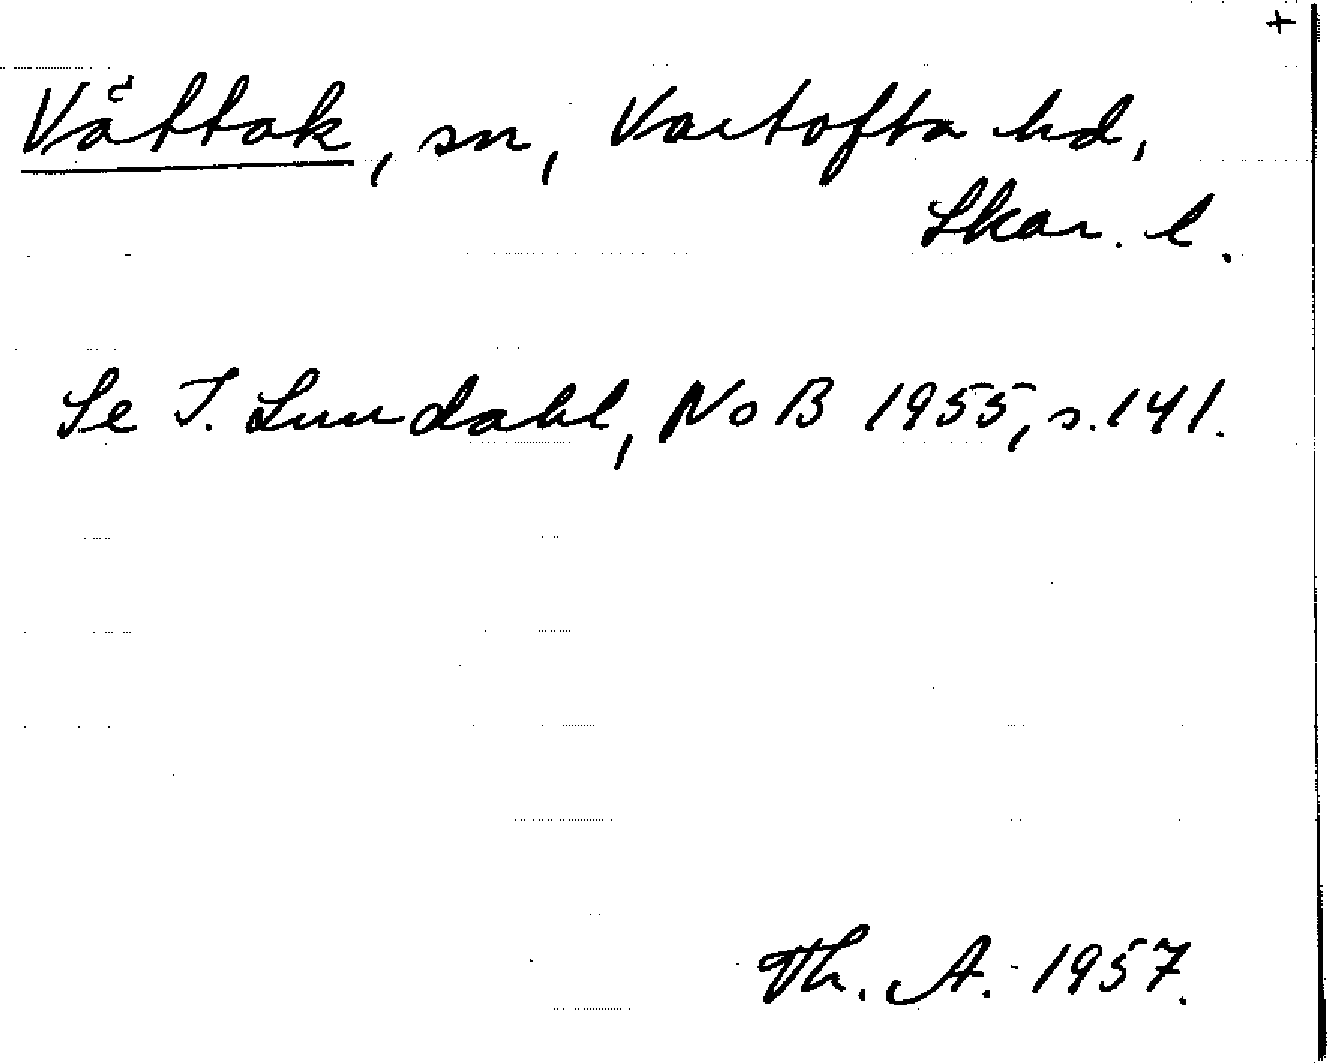 +
Våttak, sn, Vartofta hd,
Skar. l.
Se I. Lundahl, NoB 1955, s. 141.
Th. A. 1957.